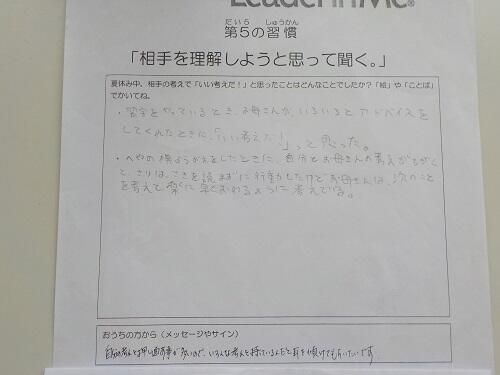 Leader in Me®
第5の習慣
「相手を理解しようと思って聞く。」
夏休み中、相手の考えで「いい考えだ！」と思ったことはどんなことでしたか？「絵」や「ことば」
でかいてね。
・習字をやっているとき、お母さんが、いろいろとアドバイスを
してくれたときに、「いい考えだ！」って思った。
・へやの模ようがえをしたときに、自分とお母さんの考えがちがく
て、さいは、さきを読まずに行動したけどお母さんは、次のこと
を考えて楽に早くおわるように考えている。
おうちの方から（メッセージやサイン）
自分の考えを押し通す事が多いので、いろんな考えを持っているんだと耳を傾けてもらいたいです。